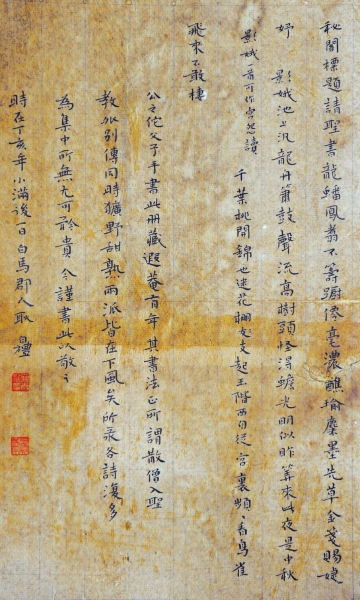 秘閣標題請聖書龍蟠鳳翥不籌躕倦毫濃醮瑜糜墨先草金箋賜婕
妤 影娥池上汎龍舟簫鼓聲流高樹頭怪得蟾光明似昨算來此夜是中秋
影娥一首可作宮怨讀 千葉桃開錦也迷花棚女支起玉階西自從宮裏頻頻看鳥雀
飛來不敢棲
公之佗父子平書此册藏遐菴有年其書法正所謂散僧入聖
教外別傳同時獷野甜熟兩派皆在下風矣所录各詩復多
為集中所無尤可矜貴今謹書此以敬之
時在丁亥年小滿後一日白馬郡人耿